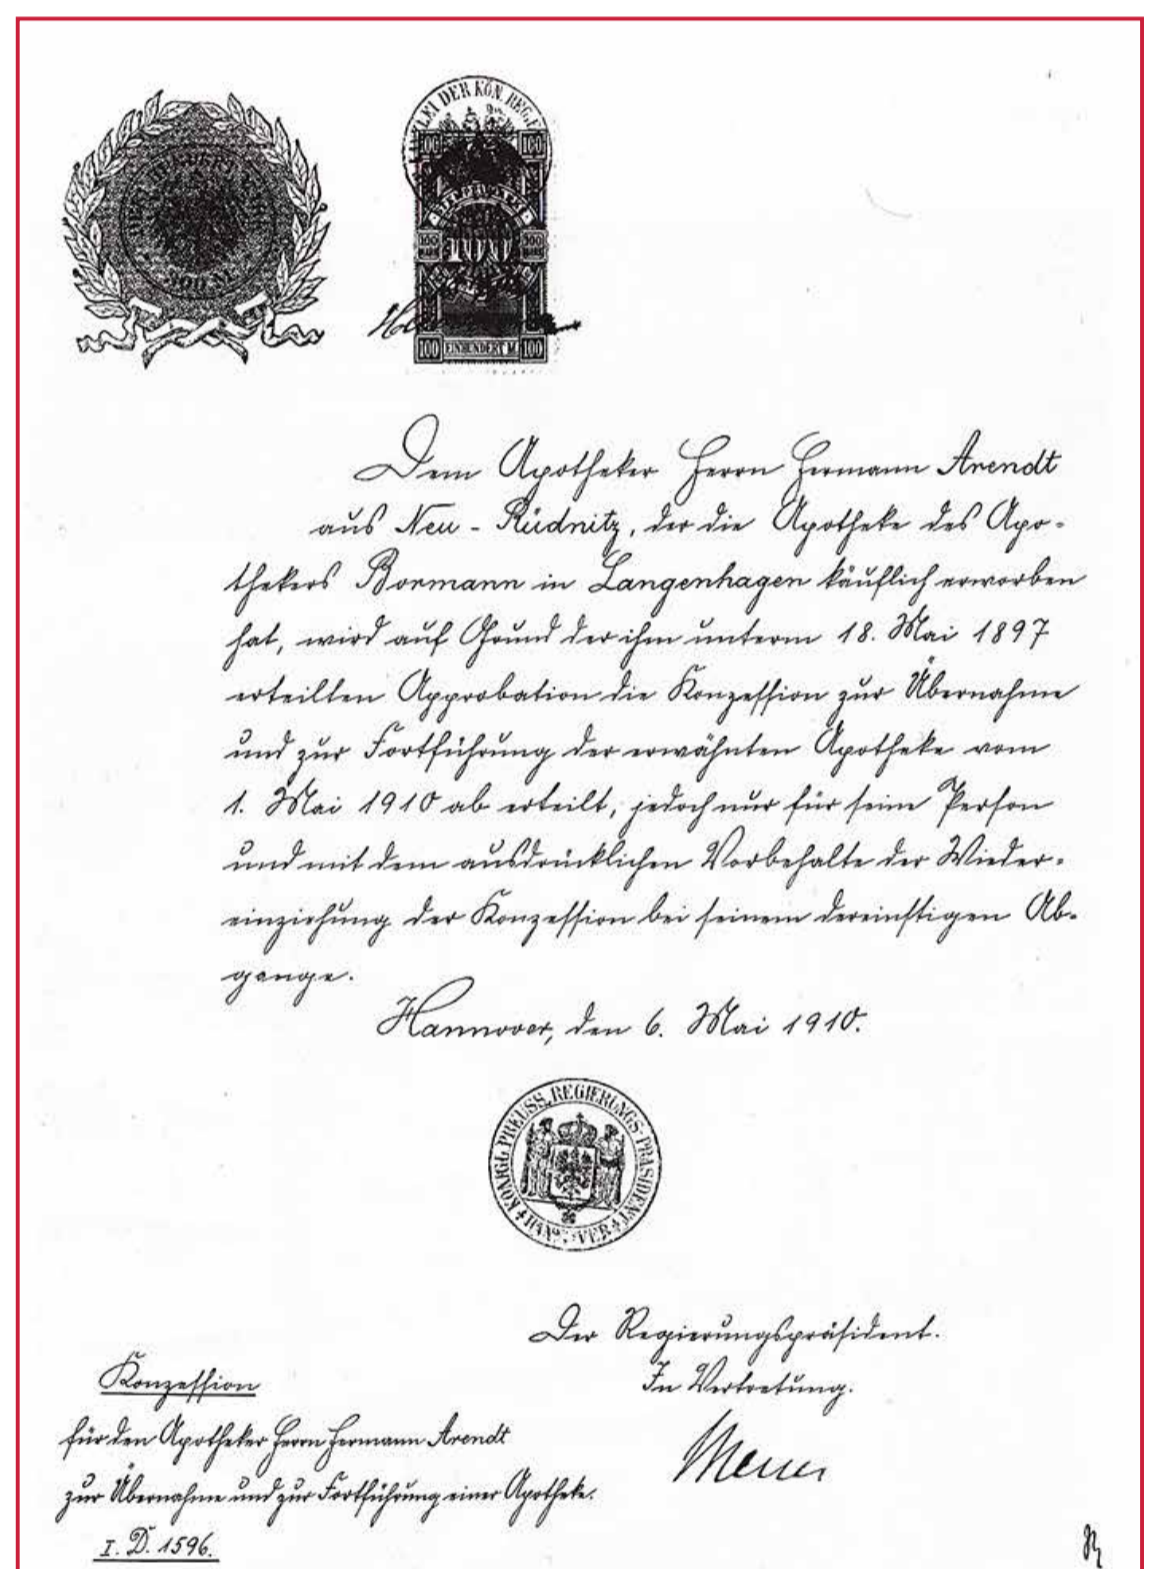 KANZLEI DER KÖN. REG.
100 100
100 MARK 100 100 MARK
100 EINHUNDERT M. 100
Dem Apotheker Herrn Hermann Arendt
aus Neu-Rüdnitz, der die Apotheke des Apo-
thekers Bormann in Langenhagen käuflich erworben
hat, wird auf Grund der ihm unterm 18. Mai 1897
erteilten Approbation die Konzession zur Übernahme
und zur Fortführung der erwähnten Apotheke vom
1. Mai 1910 ab erteilt, jedoch nur für seine Person
und mit dem ausdrücklichen Vorbehalte der Wieder-
einziehung der Konzession bei seinem dereinstigen Ab-
gange.
Hannover, den 6. Mai 1910.
KÖNIGL. PREUSS. REGIERUNGS-PRÄSIDENT HANNOVER
Der Regierungspräsident.
In Vertretung.
Konzession
für den Apotheker Herrn Hermann Arendt
zur Übernahme und zur Fortführung einer Apotheke.
I. D. 1596.